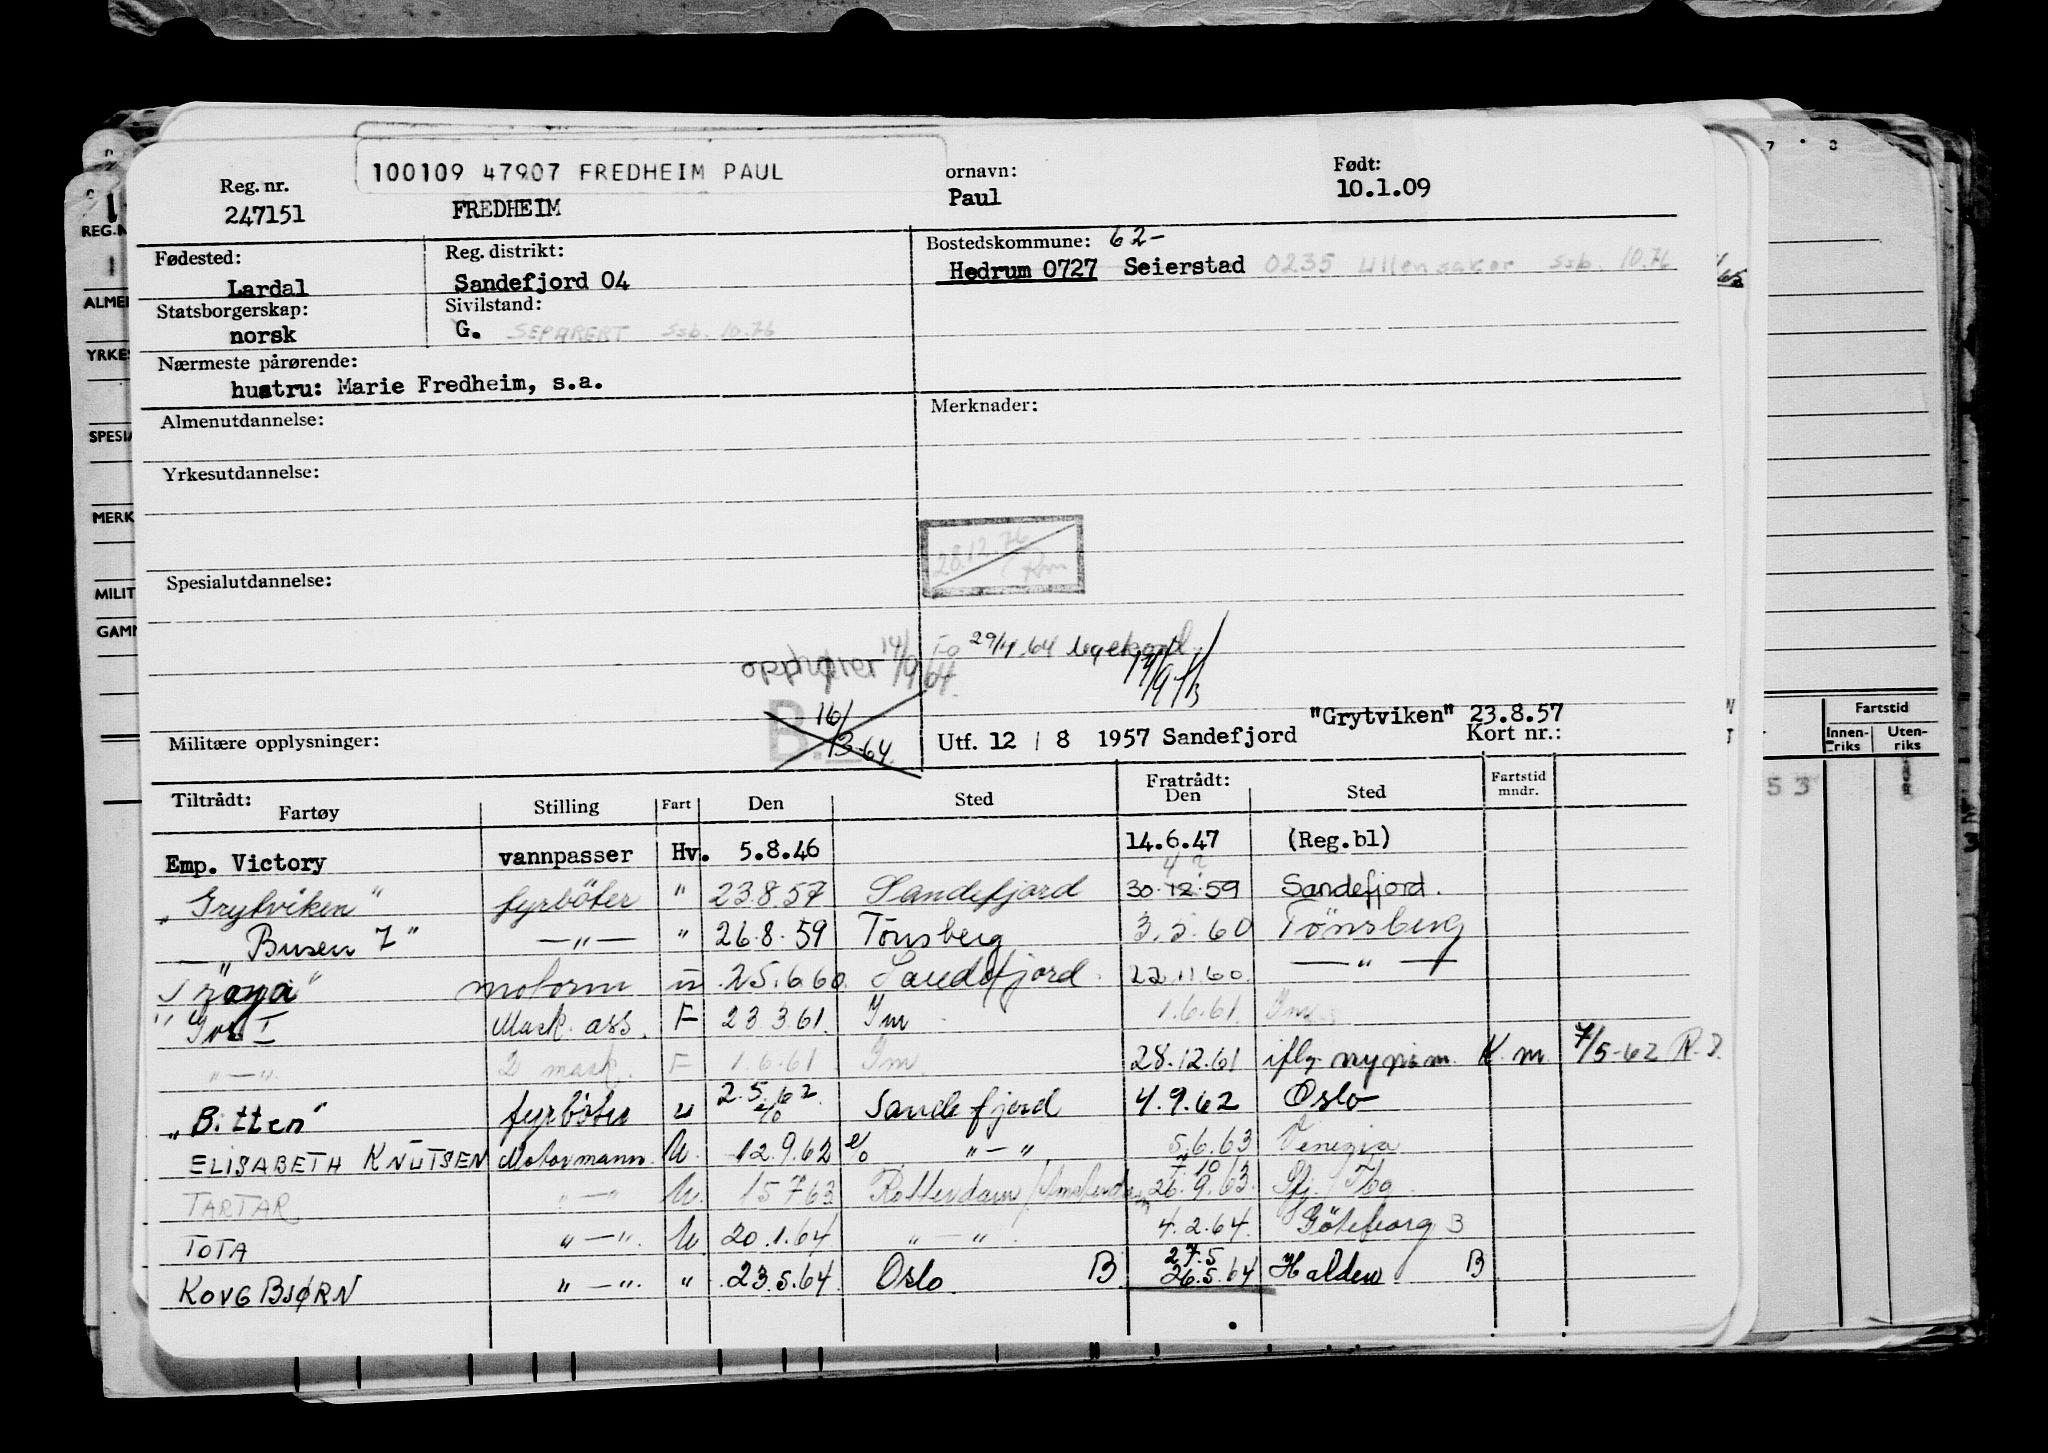 100109 47907 FREDHEIM PAUL
Reg. nr. ornavn: Født:
247151 FREDHEIM Paul 10.1.09
Fødested: Reg. distrikt: Bostedskommune: 62-
Lardal Sandefjord 04 Hedrum 0727 Seierstad 0235 Ullensaker ssb. 10.76
Statsborgerskap: Sivilstand:
norsk G. SEPARERT ssb. 10.76
Nærmeste pårørende:
hustru: Marie Fredheim, s.a.
Almenutdannelse: Merknader:
Yrkesutdannelse:
28.12.76
Spesialutdannelse:
opphører 14/9 64. 29/4.64 legekont. 14/9
B. 16/3-64.
Militære opplysninger: Utf. 12 / 8 1957 Sandefjord "Grytviken" 23.8.57
Kort nr.:
Tiltrådt: Fartøy Stilling Fart Den Sted Fratrådt: Den Sted Fartstid mndr.
Emp. Victory vannpasser Hv. 5.8.46 14.6.47 (Reg.bl)
"Grytviken" fyrböter " 23.8.57 Sandefjord 30.12.59 Sandefjord.
"Busen 7" —"— " 26.8.59 Tönsberg 3.5.60 Tønsberg
"Troya" motorm u 25.6.60. Sandefjord. 22.11.60. —"—
" I Mask. ass. F 23.3.61. Im 1.6.61. Im
"—". 2 mask. F 1.6.61 Im 28.12.61 iflg. K.m. 7/5-62 R.
"Bitten" fyrböter u 2.5.62. Sandefjord 4.9.62 Oslo
ELISABETH KNUTSEN Motormann. U. 12.9.62 "—" 5.6.63 Venezia
TARTAR "—" U. 15 7 63 Rotterdam/Amsterdam 26.9.63. Sfj. / Tbg
TOTA "—". U 20.1.64 "—". 4.2.64. Göteborg B
KOVG BJØRN "—". " .23.5.64. Oslo. B. 27.5 26.5.64 Halden B
REG.N
ALMEN
YRKES
SPESIA
MERK
MILIT
GAMM
Fartstid
Innen-riks Uten-riks
53